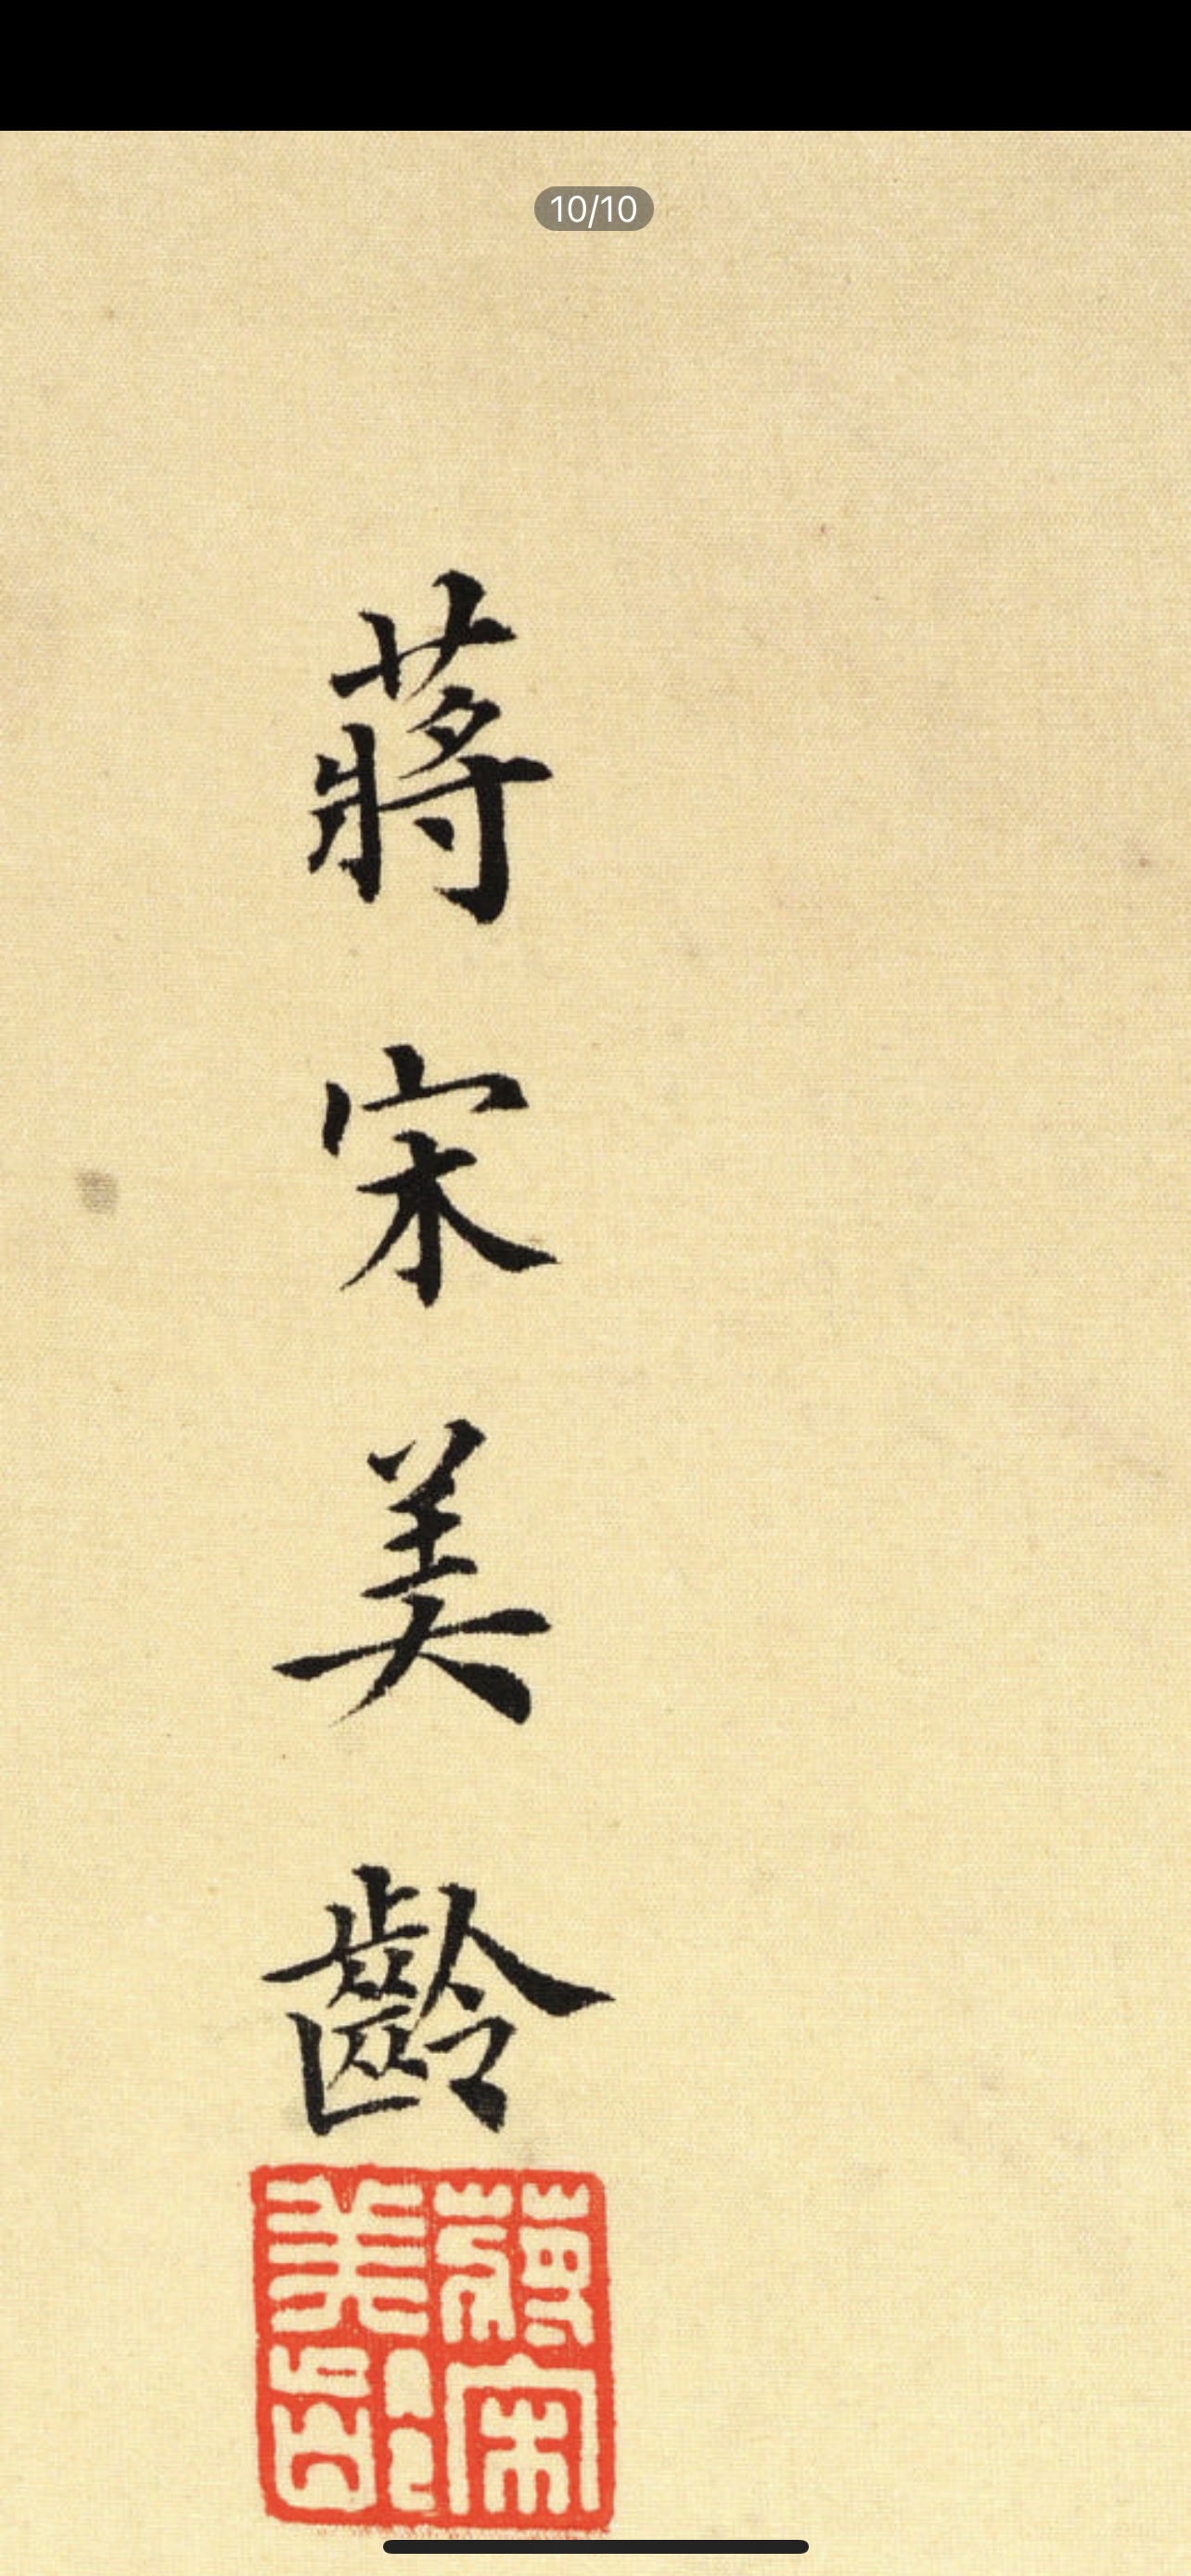 10/10
蔣宋美齡
蔣宋
美齡